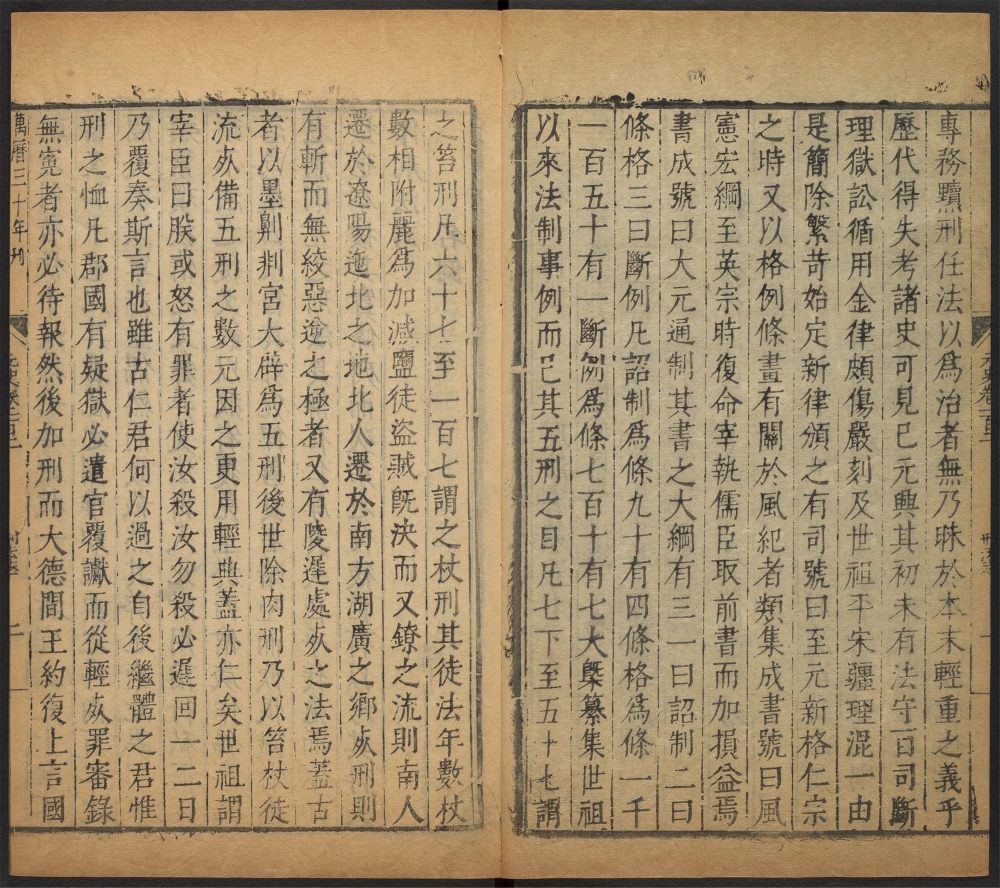 專務黷刑任法以爲治者無乃昧於本末輕重之義乎
歷代得失考諸史可見已元興其初未有法守百司斷
理獄訟循用金律頗傷嚴刻及世祖平宋疆理混一由
是簡除繁苛始定新律頒之有司號曰至元新格仁宗
之時又以格例條畫有關於風紀者類集成書號曰風
憲宏綱至英宗時復命宰執儒臣取前書而加損益焉
書成號曰大元通制其書之大綱有三一曰詔制二曰
條格三曰斷例凡詔制爲條九十有四條格爲條一千
一百五十有一斷例爲條七百十有七大槩纂集世祖
以來法制事例而已其五刑之目凡七下至五十七謂
元史卷一百二
刑法志
一
之笞刑凡六十七至一百七謂之杖刑其徒法年數杖
數相附麗爲加減鹽徒盜賊旣決而又鐐之流則南人
遷於遼陽迤北之地北人遷於南方湖廣之鄉死刑則
有斬而無絞惡逆之極者又有陵遲處死之法焉蓋古
者以墨劓剕宮大辟爲五刑後世除肉刑乃以笞杖徒
流死備五刑之數元因之更用輕典蓋亦仁矣世祖謂
宰臣曰朕或怒有罪者使汝殺汝勿殺必遲回一二日
乃覆奏斯言也雖古仁君何以過之自後繼體之君惟
刑之恤凡郡國有疑獄必遣官覆讞而從輕死罪審錄
無寃者亦必待報然後加刑而大德間王約復上言國
萬曆三十年刊
二